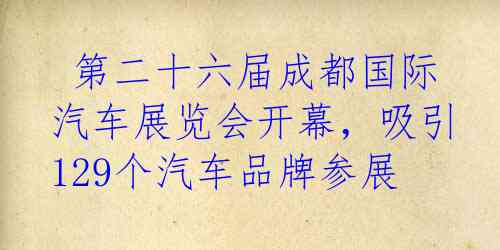 第二十六届成都国际
汽车展览会开幕，吸引
129个汽车品牌参展